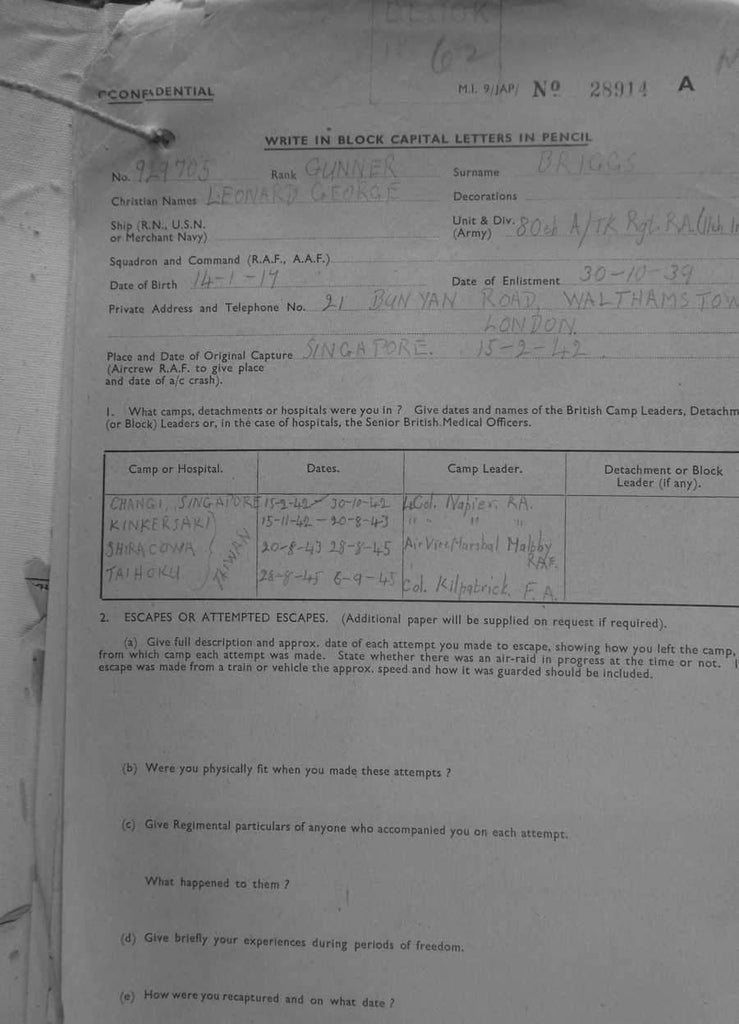 BLOCK
62
CONFIDENTIAL
M.I. 9/JAP/ No 28914 A
WRITE IN BLOCK CAPITAL LETTERS IN PENCIL
No. 929705 Rank GUNNER Surname BRIGGS
Christian Names LEONARD GEORGE Decorations
Ship (R.N., U.S.N. or Merchant Navy) Unit & Div. (Army) 80th A/TK Rgt. RA
Squadron and Command (R.A.F., A.A.F.)
Date of Birth 14-1-17 Date of Enlistment 30-10-39
Private Address and Telephone No. 21 BUNYAN ROAD, WALTHAMSTOW
LONDON.
Place and Date of Original Capture SINGAPORE. 15-2-42
(Aircrew R.A.F. to give place
and date of a/c crash).
1. What camps, detachments or hospitals were you in ? Give dates and names of the British Camp Leaders, Detachm
(or Block) Leaders or, in the case of hospitals, the Senior British Medical Officers.
Camp or Hospital. Dates. Camp Leader. Detachment or Block Leader (if any).
CHANGI, SINGAPORE 15-2-42 - 30-10-42 Lt Col. Napier. RA.
KINKERSAKI 15-11-42 - 20-8-43 " " " "
SHIRACOWA TAIWAN 20-8-43 28-8-45 Air Vice Marshal Maltby RAF.
TAIHOKU 28-8-45 6-9-45 Col. Kilpatrick. F.A.
2. ESCAPES OR ATTEMPTED ESCAPES. (Additional paper will be supplied on request if required).
(a) Give full description and approx. date of each attempt you made to escape, showing how you left the camp,
from which camp each attempt was made. State whether there was an air-raid in progress at the time or not. I
escape was made from a train or vehicle the approx. speed and how it was guarded should be included.
(b) Were you physically fit when you made these attempts ?
(c) Give Regimental particulars of anyone who accompanied you on each attempt.
What happened to them ?
(d) Give briefly your experiences during periods of freedom.
(e) How were you recaptured and on what date ?